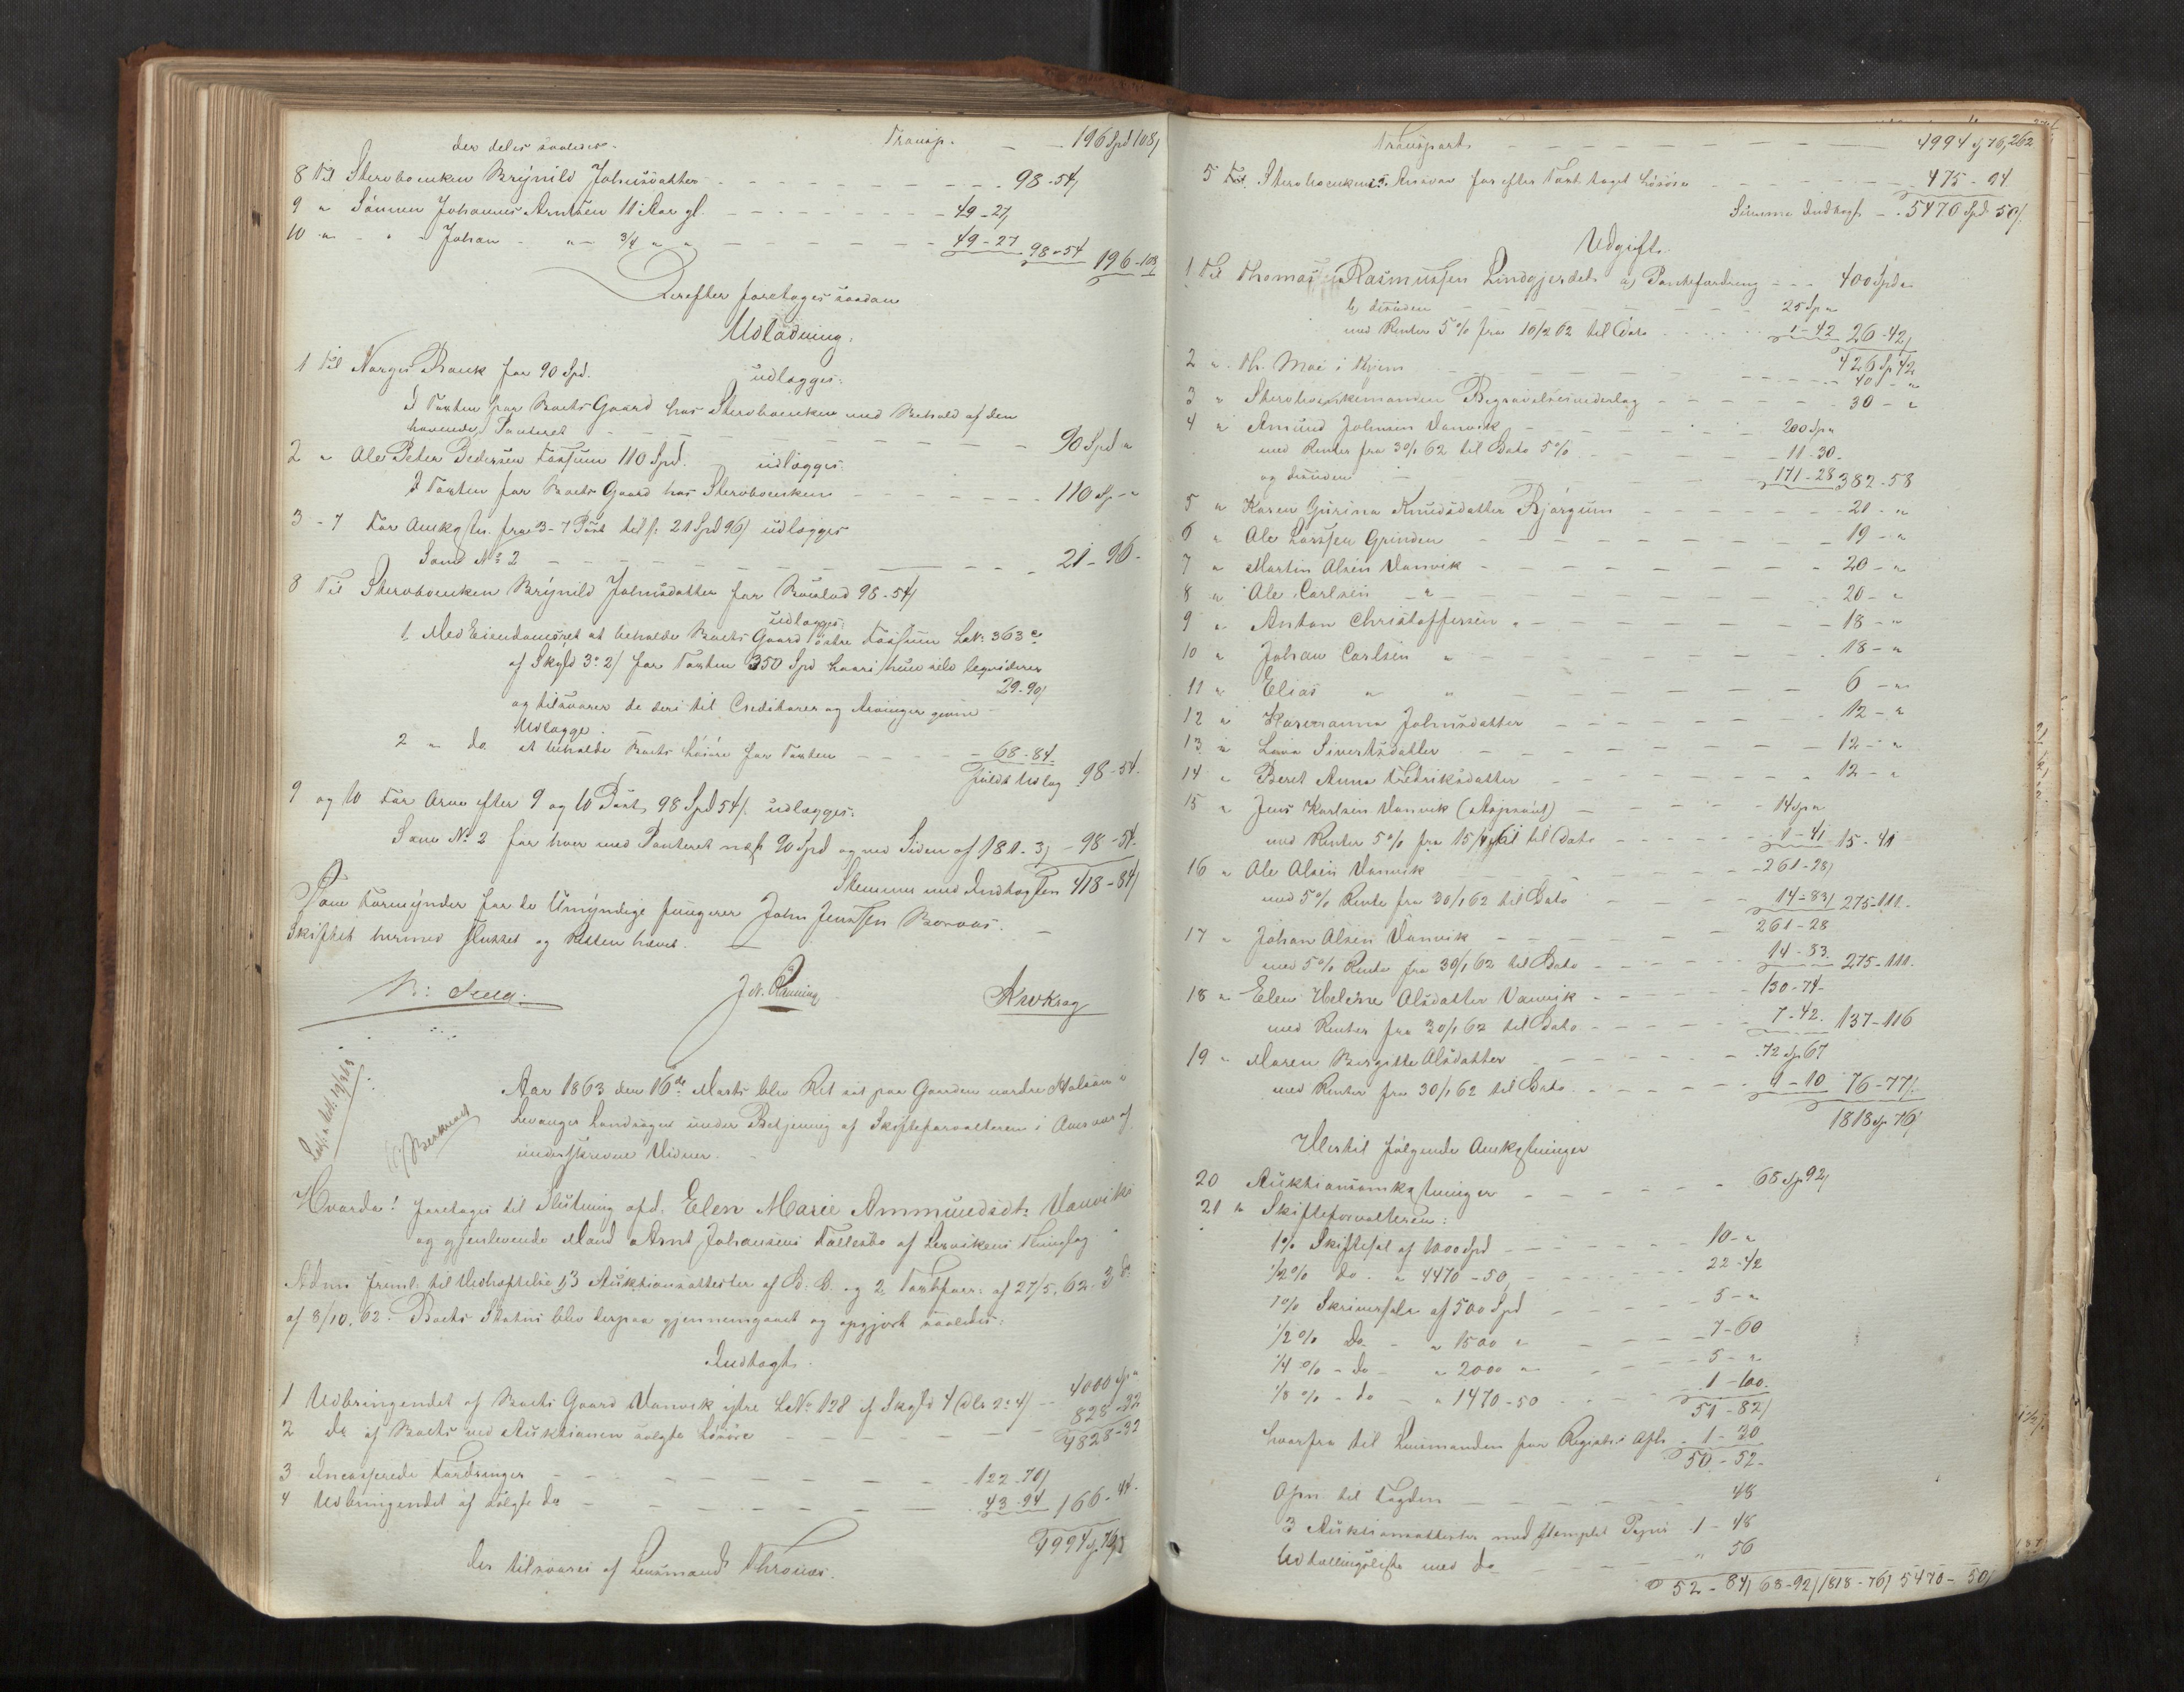 der deles saaledes. Transp. - - 196 Spd 108/
8 Til Sterboenken Brynild Johnsdatter - - - 98-54/
9 " Sønnen Johannes Arntsen 11 Aar gl. - - - 49-27/
10 " - " - Johan - " - 3/4 " " - - - 49-27 98-54 196-108/
Derefter foretoges saadan
Udlodning.
1 Til Norges Bank for 90 Spd. udlægges:
I Taxten for Boets Gaard hos Sterboenken med Behold af den
havende Panteret - - - 90 Spd "
2 " Ole Peter Pedersen Fossum 110 Spd. udlægges:
I Taxten for Boets Gaard hos Sterboenken - - - 110 Sp - "
3-7 For Omkostn. fra 3-7 Post tils: 21 Spd 96/ udlægges
Som No 2 - - - 21-96-
8 Til Sterboenken Brynild Johnsdatter for Boeslod 98-54/
udlægges:
1. Med Eiendomsret at beholde Boets Gaard østre Fossum LNr: 363 c
af Skyld 3-2/ for Taxten 350 Spd hvori hun selv beregnes
29-90/
og tilsvarer de deri til Creditorer og Arvinger givne
Udlægge.
2 " do at beholde Boets Løsøre for Taxten - - - 68-84
fuldt Udlæg 98-54.
9 og 10 For Arven efter 9 og 10 Post, 98 Spd 54/. udlægges:
Som No 2 for hver med Panteret næst 90 Spd og ved Siden af 181-3/ - 98-54.
Stemmer med Indtægten 418-84/
Som Formynder for de Umyndige fungerer John Jenssen Borvas. -
Skiftet hermed sluttet og Retten hævet. -
J. N. Rønning
AwKrag
Aar 1863 den 16de Marts blev Ret sat paa Gaarden nordre Holsan i
Levanger Landsogn under Betjening af Skifteforvalteren i Overvær af
underskrevne Vidner. -
Hvorda! foretoges til Slutning afd. Elen Marie Ammundsdt: Vanviks
og gjenlevende Mand Arnt Johansens Fællesbo af Leesvikens Thinglag
Adm. freml. til Vedhæftelse 1) 3 Auktionsattester af D. D. og 2, Taxtforr: af 27/5. 62. 3 do
af 8/10. 62. Boets Status blev derpaa gjennemgaaet og opgjort saaledes:
Indtægt.
1 Udbringendet af Boets Gaard Vanvik østre LNo 128 af Skyld 4 Dlr 2-4/ - 4000 Sp "
2 do af Boets ved Auktionen solgte Løsøre - - - 828-32
4828-32
3 Incasserede Fordringer - - - 122-70/
4 Udbringendet af solgte do - - - 43-94 166-44.
4994 Sp 76/
der tilsvares af Lensmand Thrones.
Transport - - - 4994 Sp 76/ 262
5 Til Sterboenkem. Ansvar for efter Taxt. taget Løsøre - - - 475-94
Summa Indtægt - 5470 Spd 50/.
Udgift.
1 Til Thomas Rasmussen Lindgjerdet a) Pantefordring - - - 400 Spd "
b, desuden - - - 25 Sp "
med Renter 5 % fra 10/2 62 til Dato - - - 1-42 26-42/
426 Sp 42
2 " Th. Moe i Hjem - - - 40 - "
3 " Sterboenkemanden Begravelsesunderlag - - - 30 - "
4 " Amund Johnsen Vanvik - - - 200 Sp "
med Renter fra 30/1 62 til Dato 5 % - - - 11-30-
og desuden - - - 171-28 382-58
5 " Karen Gurina Knudsdatter Bjørgum - - - 21 - "
6 " Ole Larssen Grinden - - - 19 - "
7 " Martin Olsen Vanvik - - - 20 - "
8 " Ole Carlsen " - - - 20 - "
9 " Anton Christoffersen " - - - 18 - "
10 " Johan Carlsen " - - - 18 - "
11 " Elias " " - - - 6 - "
12 " Karenanna Johnsdatter - - - 12 - "
13 " Lava Sivertsdatter - - - 12 - "
14 " Beret Anna Fredriksdatter - - - 12 - "
15 " Jens Karlsen Vanvik (Aspraut) - - - 14 Sp "
med Renter 5 % fra 15/4 61 til Dato - - - 1-41 15-41
16 " Ole Olsen Vanvik - - - 261-28/
med 5 % Rente fra 30/1 62 til Dato - - - 14-83/ 275-111.
17 " Johan Olsen Vanvik - - - 261-28
med 5 % Rente fra 30/1 62 til Dato - - - 14-83. 275-111.
18 " Elen Helene Olsdatter Vanvik - - - 130-74-
med Renter fra 30/1 62 til Dato - - - 7-42. 137-116
19 " Maren Bergitte Olsdatter - - - 72 Sp 67
med Renter fra 30/1 62 til Dato - - - 4-10 76-77/.
1818 Sp 76/
Hertil følgende Omkostninger
20 Auktionsomkostninger - - - 68 Sp 92/
21 " Skifteforvalteren:
1 % Skiftesal af 1000 Spd - - - 10 - "
1/2 % do. " 4470-50 - - - 22-42
1 % Skriversalær af 500 Spd - - - 5 - "
1/2 % Do - " 1500 " - - - 7-60
1/4 % - do - " 2000 " - - - 5 - "
1/8 % - do " 1470-50 - - - 1-100.
51-82/
hvorfra til Lensmanden for Registr. Afh. 1-30
50-52-
Ofm til Fogden - - - 48
3 Auktionsattester med stemplet Papir 1-48
Udtællingsliste med do - - - " 56
52-84/ 68-92/ 1818-76/ 5470-50/